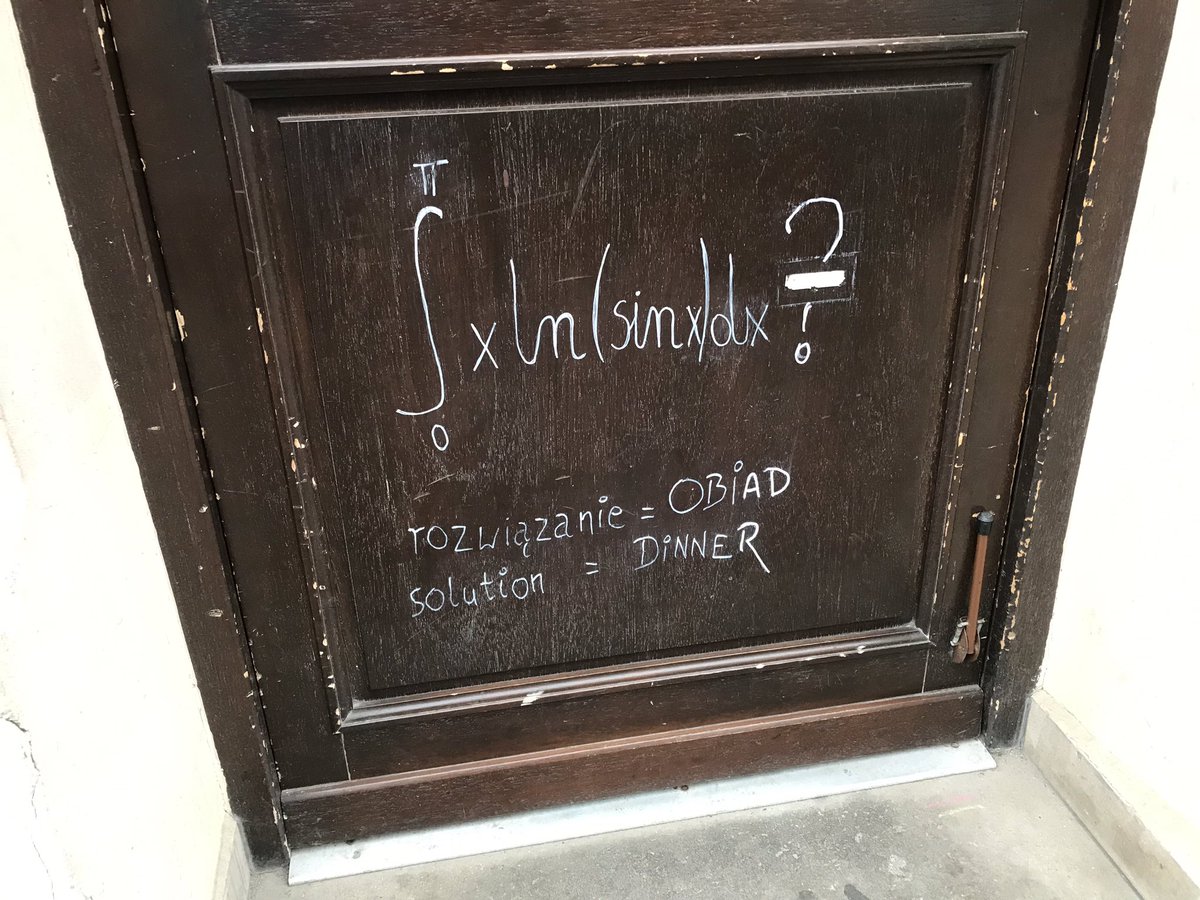 ∫₀^π x ln(sinx)dx ?
rozwiązanie = OBiAD
solution = DiNNER